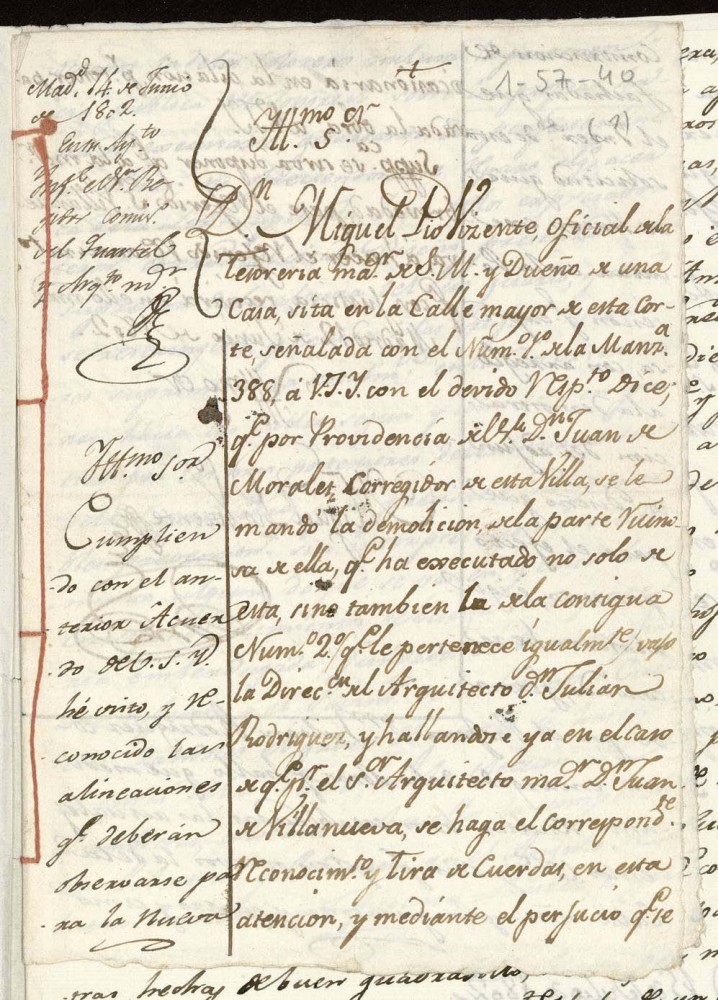 1-57-40
(1)
Mad.d 14 de Junio
de 1802.
Exmo Ay.to
del Quartel
y Arq.to m.or
Ill.mo S.r
D.n Miguel Pio Vizente, oficial de la
Tesoreria ma.or de S. M. y Dueño de una
Casa, sita en la Calle mayor de esta Cor-
te, señalada con el Núm.o 1.o de la Manz.a
388, á V.S.Y. con el devido Resp.to Dice;
q.e por Providencia del S.r D.n Juan de
Morales, Corregidor de esta Villa, se le
mandó la demolicion, de la parte Ruino-
sa de ella, q.e ha executado no solo de
esta, sino tambien de la contigua
Num.o 2.o/ q.e le pertenece igualm.te / vajo
la Direc.on del Arquitecto d.n Julian
Rodriguez, y hallandose ya en el caso
de q.e p.r el S.or Arquitecto ma.or D.n Juan
de Villanueva, se haga el correspond.te
Reconocim.to y tira de Cuerdas, en esta
atencion, y mediante el perjucio q.e se
Ill.mo Sor
Cumplien
do con el an-
terior Acuer
do de V. S. Y.
hé visto, y re-
conocido las
alineaciones
q.e deberán
observarse pa
ra la nueva
tras hechas de buen